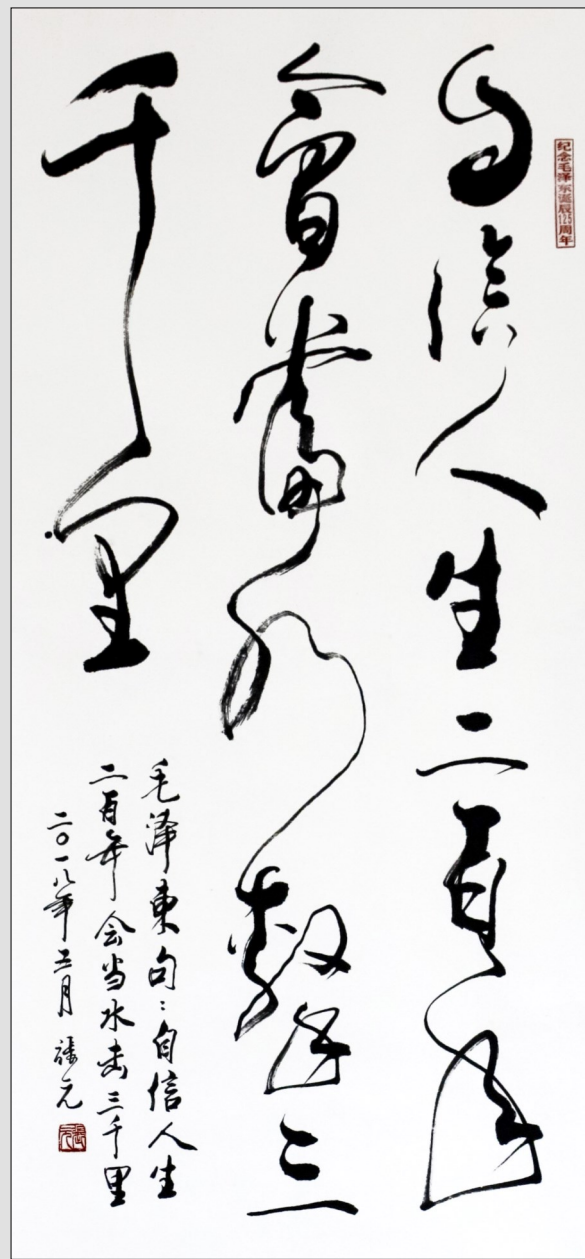 纪念毛泽东诞辰125周年
自信人生二百年
會當水擊三
千里
毛泽東句:自信人生
二百年会当水击三千里
二〇一八年五月